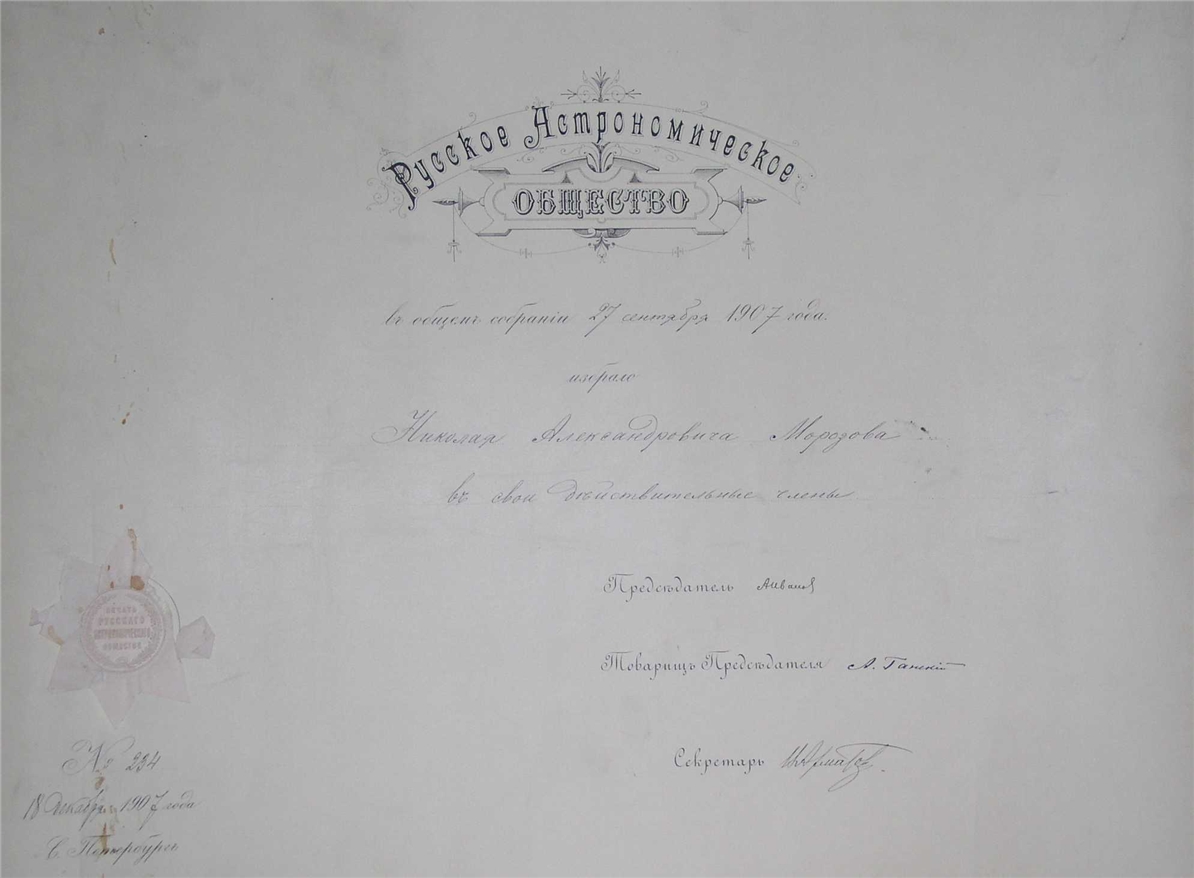 Русское Астрономическое
ОБЩЕСТВО
въ общемъ собраніи 27 сентября 1907 года.
избрало
Николая Александровича Морозова
въ свои дѣйствительные члены
Предсѣдатель АИвановъ
Товарищъ Предсѣдателя А. Ганскій
Секретарь
ПЕЧАТЬ
РУССКАГО
АСТРОНОМИЧЕСКАГО
ОБЩЕСТВА
№ 234
18 декабря 1907 года
С. Петербургъ